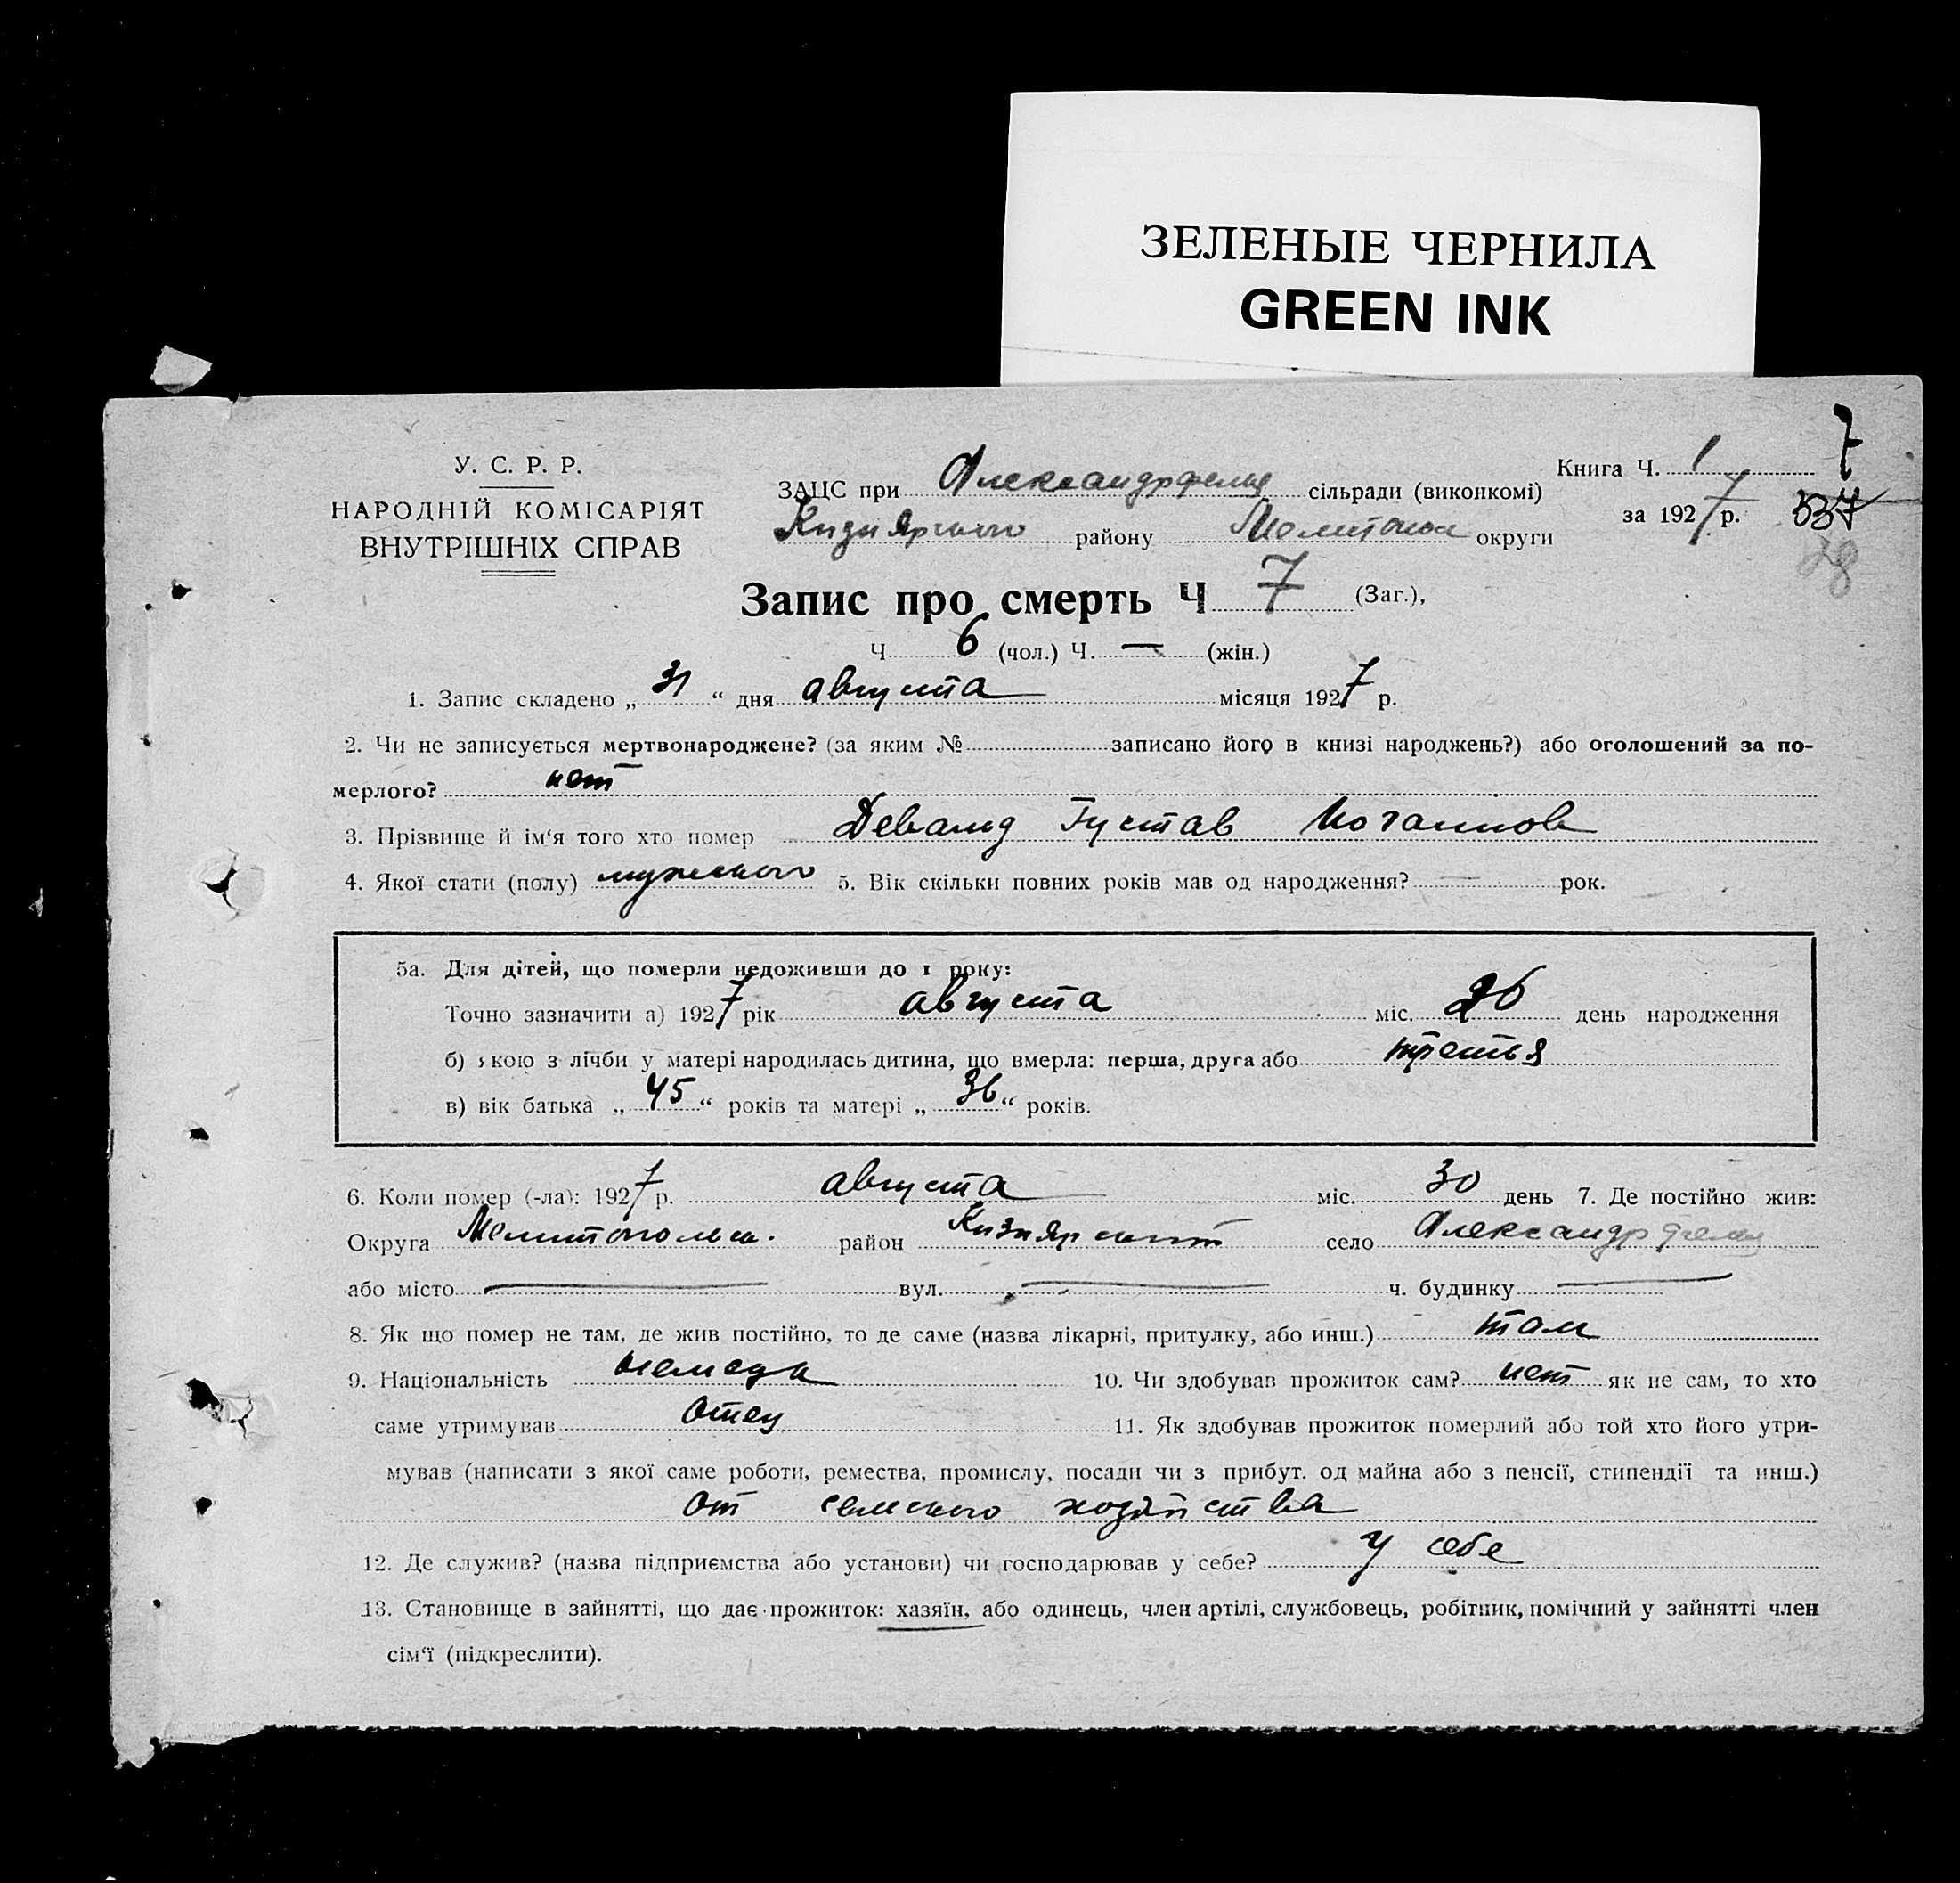 ЗЕЛЕНЫЕ ЧЕРНИЛА
GREEN INK
7
У. С. Р. Р.
НАРОДНІЙ КОМІСАРІЯТ
ВНУТРІШНІХ СПРАВ
Книга Ч. 1
за 1927 р. 337
38
ЗАЦС при Александрфельд сільради (виконкомі)
Кизиярского району Мелитопол округи
Запис про смерть Ч 7 (Заг.),
Ч 6 (чол.) Ч. — (жін.)
1. Запис складено „ 31 “ дня августа місяця 1927 р.
2. Чи не записується мертвонароджене? (за яким № записано його в книзі народжень?) або оголошений за по-
мерлого? нет
3. Прізвище й ім‘я того хто помер Девальд Густав Иоганнов
4. Якої стати (полу) мужского 5. Вік скільки повних років мав од народження? — рок.
5а. Для дітей, що померли недоживши до 1 року:
Точно зазначити а) 1927 рік августа міс. 26 день народження
б) якою з лічби у матері народилась дитина, що вмерла: перша, друга або третья
в) вік батька „ 45 “ років та матері „ 36 “ років.
6. Коли помер (-ла): 1927 р. августа міс. 30 день 7. Де постійно жив:
Округа Мелитопольск. район Кизиярский село Александрфельд
або місто — вул. — ч. будинку —
8. Як що помер не там, де жив постійно, то де саме (назва лікарні, притулку, або инш.) там
9. Національність немецк 10. Чи здобував прожиток сам? нет як не сам, то хто
саме утримував Отец 11. Як здобував прожиток померлий або той хто його утри-
мував (написати з якої саме роботи, ремества, промислу, посади чи з прибут. од майна або з пенсії, стипендії та инш.)
от селского хозяйства
12. Де служив? (назва підприємства або установи) чи господарював у себе? у себе
13. Становище в зайнятті, що дає прожиток: хазяїн, або одинець, член артілі, службовець, робітник, помічний у зайнятті член
сім‘ї (підкреслити).